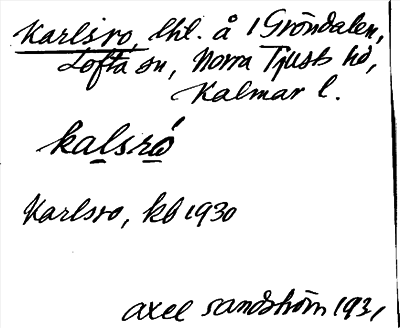 Karlsro, lht. å 1 Gröndalen,
Lofta sn, Norra Tjust hd,
Kalmar l.
kalsró
Karlsro, kb 1930
axel sandström 1931